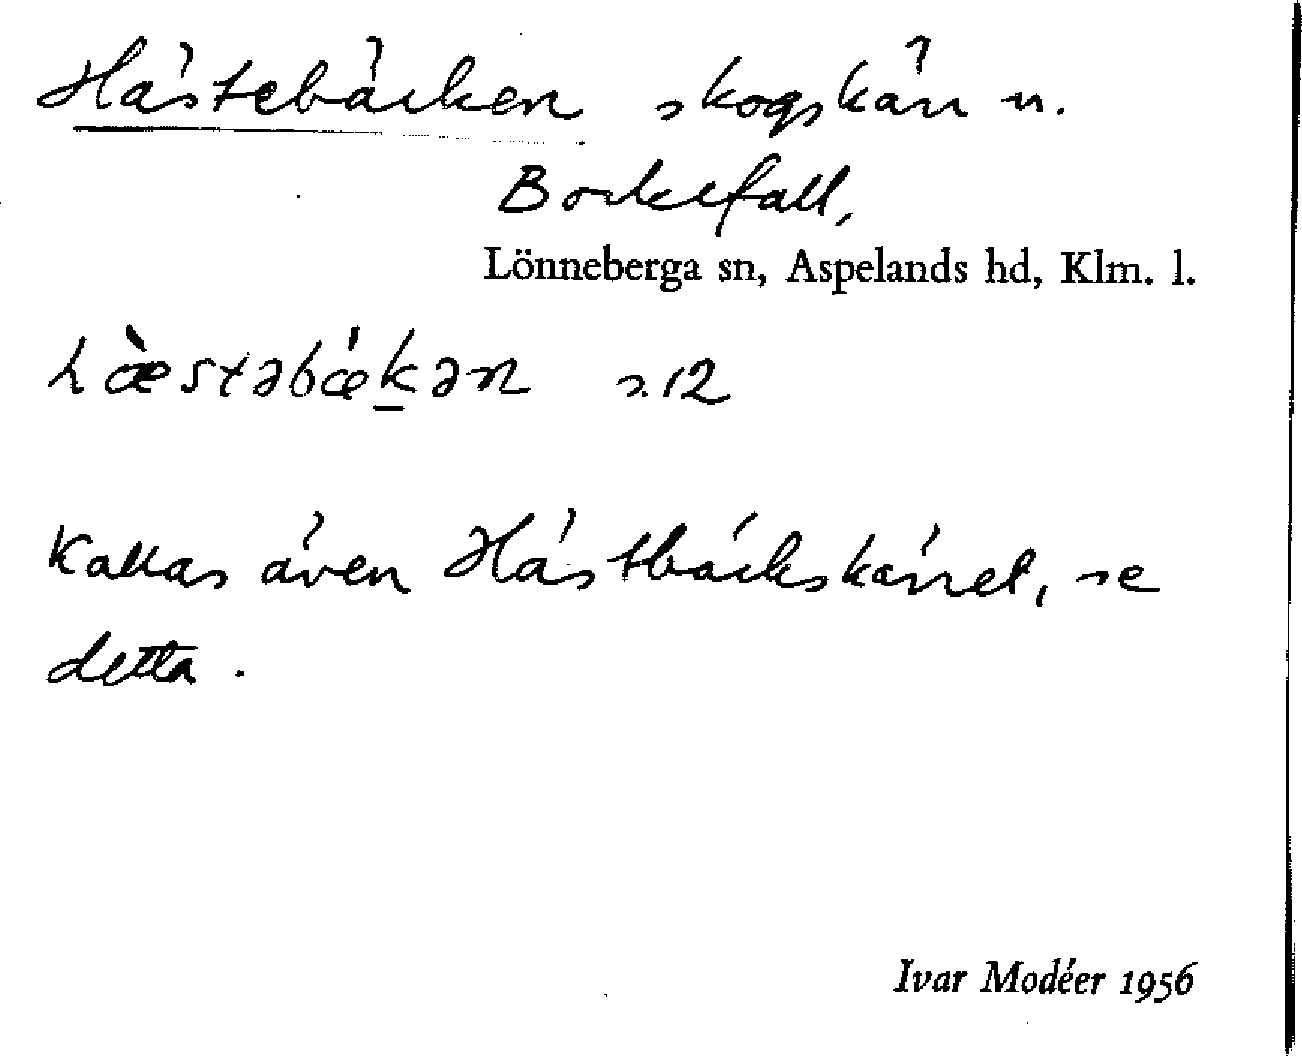 Hästebäcken skogskärr n.
Bockefall,
Lönneberga sn, Aspelands hd, Klm. l.
hæ̀stəbǽk̲ən s. 12
Kallas även Hästbäckskärret, se
detta.
Ivar Modéer 1956